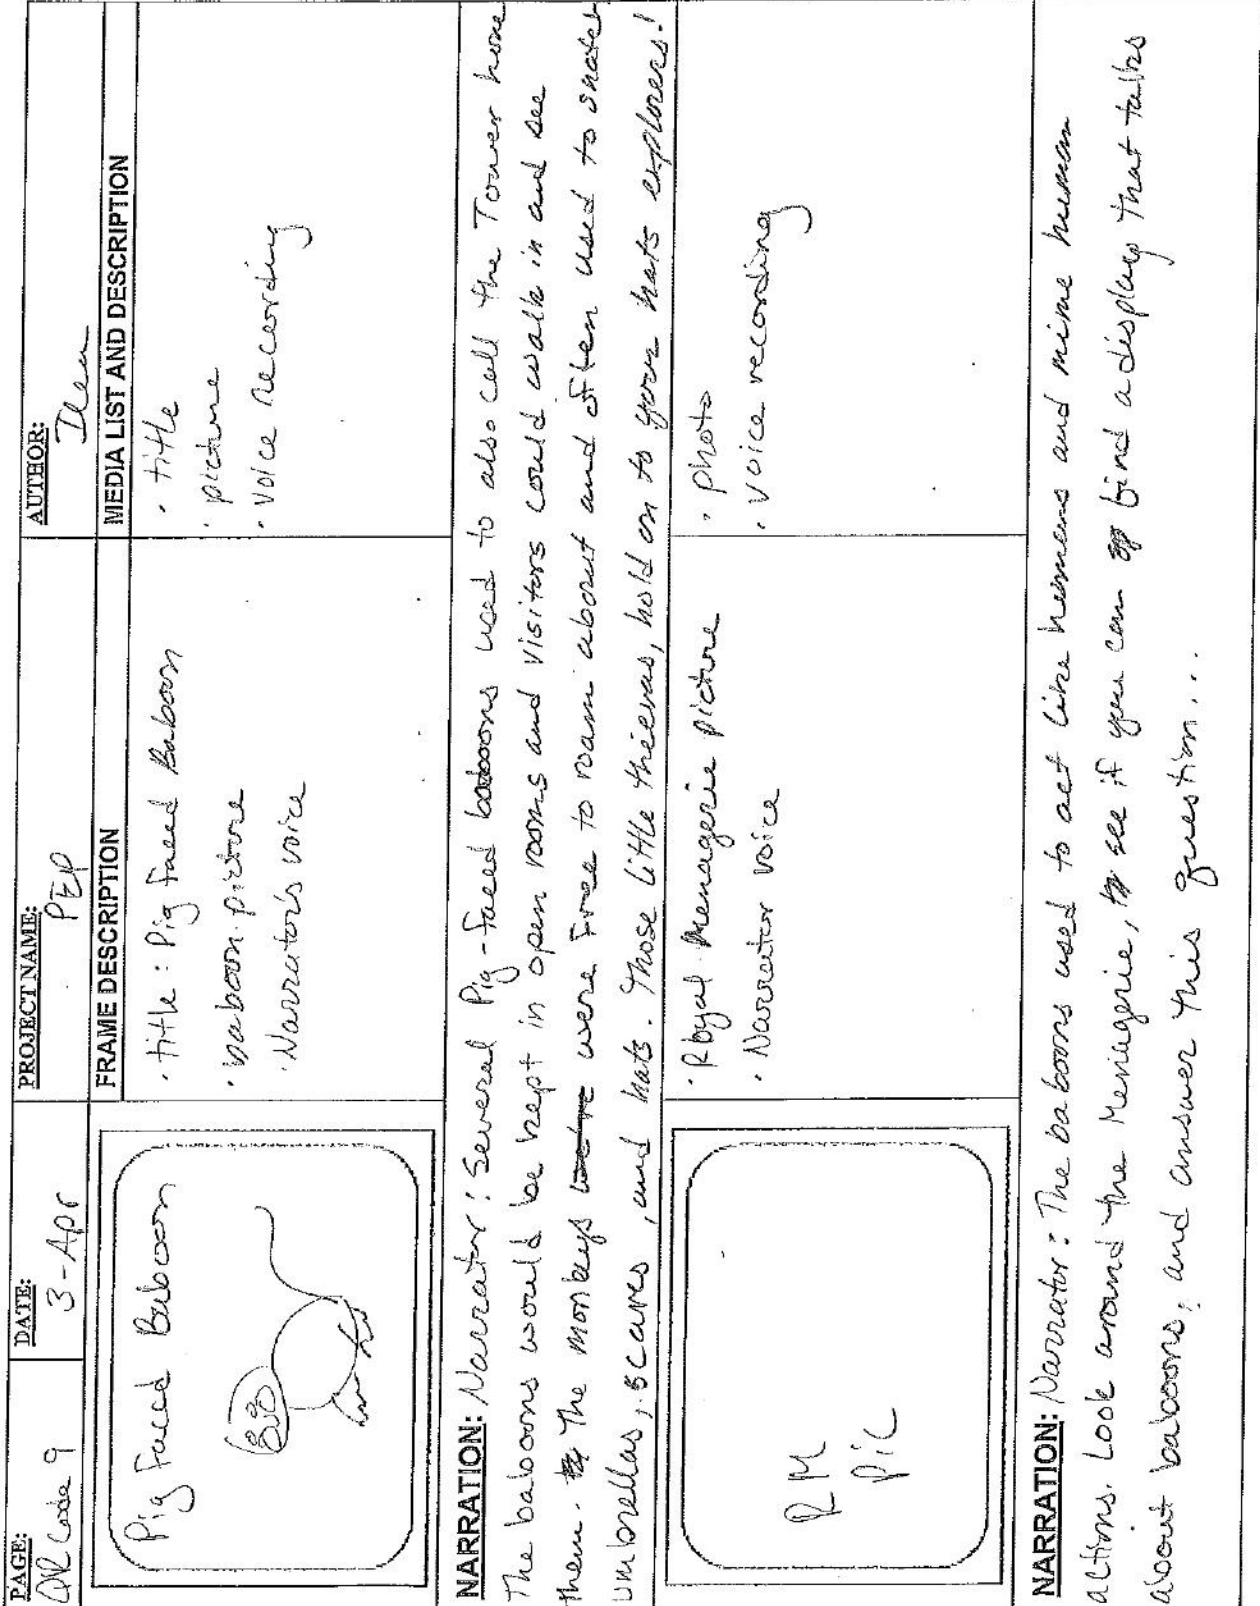 PAGE: DATE: PROJECT NAME: AUTHOR:
QR Code 9 3-Apr PEP
FRAME DESCRIPTION MEDIA LIST AND DESCRIPTION
Pig Faced Baboon
· title: Pig faced Baboon
· baboon picture
· Narrator's voice
· title
· picture
· Voice recording
NARRATION: Narrator: Several Pig-faced baboons used to also call the Tower home
The baboons would be kept in open rooms and visitors could walk in and see
them. The monkeys were free to roam about and often used to snatch
umbrellas, scarves, and hats. Those little thieves, hold on to your hats explorers!
RM
Pic
· Royal Menagerie picture
· Narrator voice
· photo
· voice recording
NARRATION: Narrator: The baboons used to act like humans and mime human
actions. Look around the Menagerie, see if you can find a display that talks
about baboons, and answer this question...